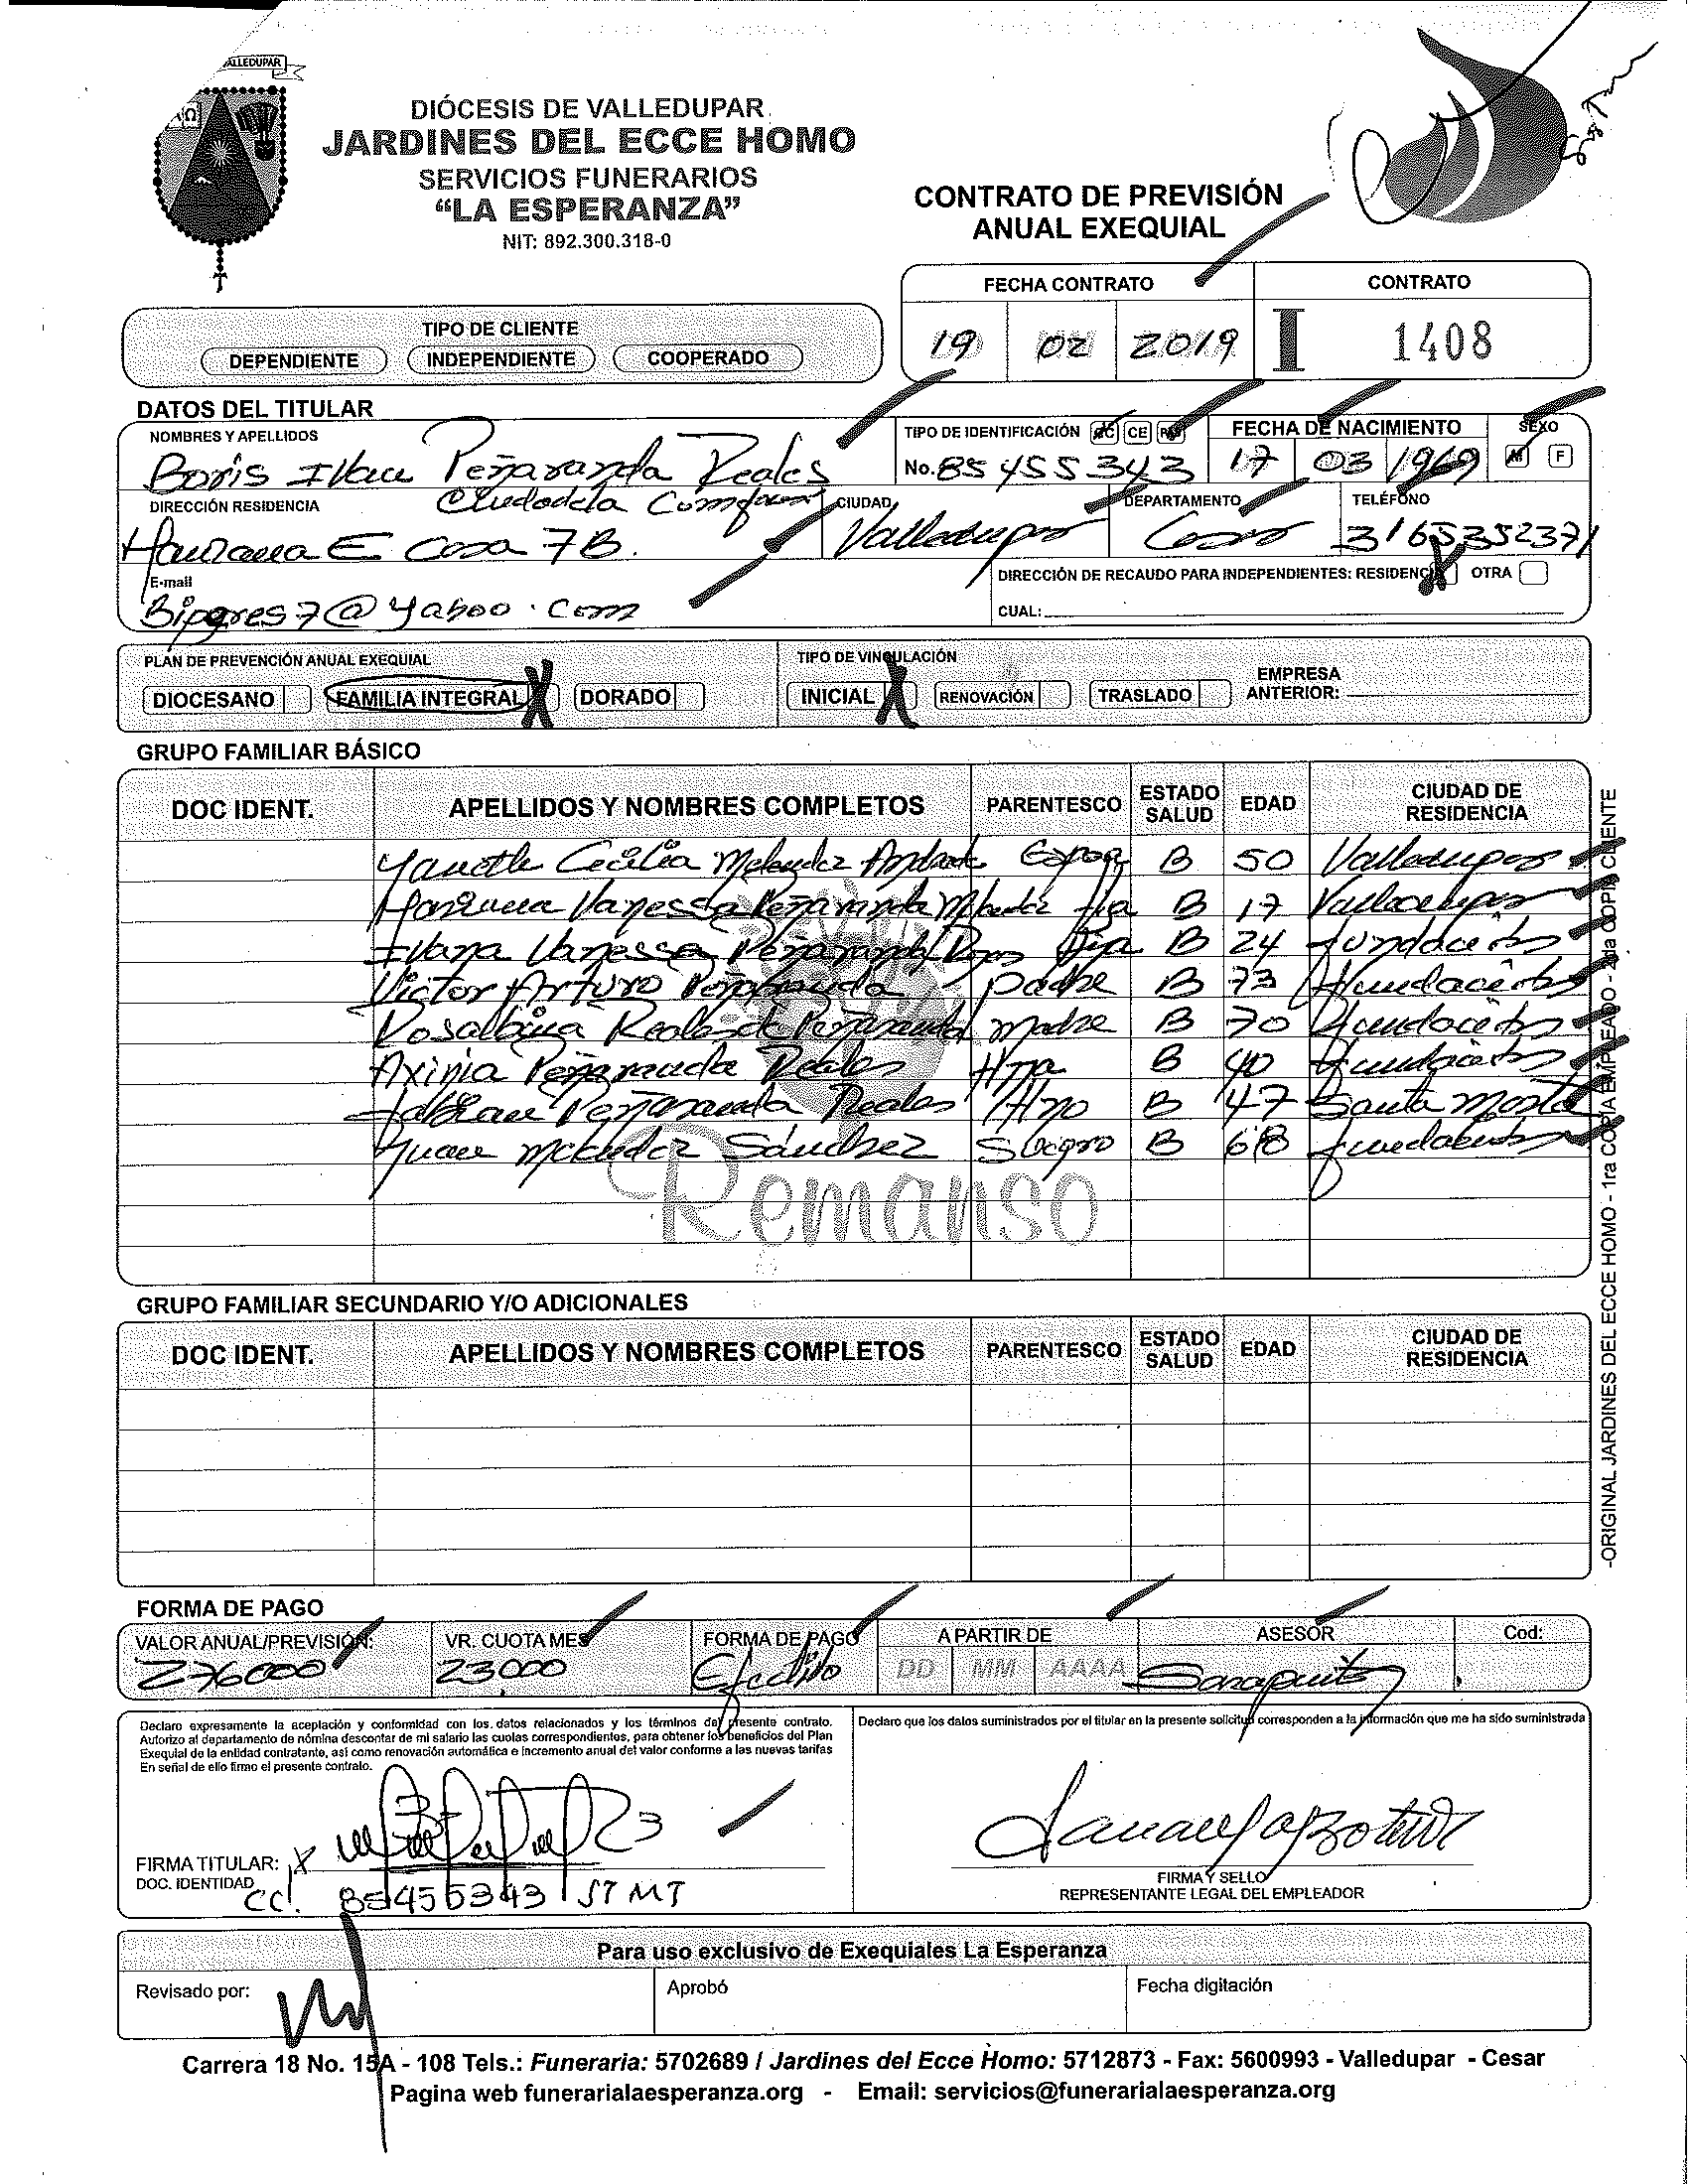 VALLEDUPAR
DIÓCESIS DE VALLEDUPAR
JARDINES DEL ECCE HOMO
SERVICIOS FUNERARIOS
“LA ESPERANZA”
NIT: 892.300.318-0
CONTRATO DE PREVISIÓN
ANUAL EXEQUIAL
FECHA CONTRATO CONTRATO
19 02 2019 I 1408
TIPO DE CLIENTE
DEPENDIENTE INDEPENDIENTE COOPERADO
DATOS DEL TITULAR
NOMBRES Y APELLIDOS TIPO DE IDENTIFICACIÓN CC CE FECHA DE NACIMIENTO SEXO
Boris Ivan Peñaranda Reales No. 85455343 17 03 1969 M F
DIRECCIÓN RESIDENCIA Ciudadela CIUDAD DEPARTAMENTO TELÉFONO
E Casa 7B. Valledupar Cesar 3165352371
E-mail DIRECCIÓN DE RECAUDO PARA INDEPENDIENTES: RESIDENCIA X OTRA
Bipares7@yahoo.com CUAL:
PLAN DE PREVENCIÓN ANUAL EXEQUIAL TIPO DE VINCULACIÓN
DIOCESANO FAMILIA INTEGRAL X DORADO INICIAL X RENOVACIÓN TRASLADO EMPRESA ANTERIOR:
GRUPO FAMILIAR BÁSICO
DOC IDENT. APELLIDOS Y NOMBRES COMPLETOS PARENTESCO ESTADO SALUD EDAD CIUDAD DE RESIDENCIA
Yaneth Cecilia Melendez Esposa B 50 Valledupar
Vanessa Peñaranda Melendez Hija B 17 Valledupar
Ivana Vanessa Peñaranda Hija B 24 fundación
Victor Arturo Peñaranda padre B 73 fundación
Rosalbina Reales de Peñaranda madre B 70 fundación
Axinia Peñaranda Reales Hna B 40 fundación
Fabian Peñaranda Reales Hno B 47 Santa Marta
Juan Melendez Sánchez Suegro B 68 fundación
Remanso
GRUPO FAMILIAR SECUNDARIO Y/O ADICIONALES
DOC IDENT. APELLIDOS Y NOMBRES COMPLETOS PARENTESCO ESTADO SALUD EDAD CIUDAD DE RESIDENCIA
-ORIGINAL JARDINES DEL ECCE HOMO - 1ra COPIA EMPLEADO - 2da COPIA CLIENTE
FORMA DE PAGO
VALOR ANUAL/PREVISIÓN: VR. CUOTA MES FORMA DE PAGO A PARTIR DE ASESOR Cod:
276000 23,000 Efectivo DD MM AAAA
Declaro expresamente la aceptación y conformidad con los datos relacionados y los términos del presente contrato.
Autorizo al departamento de nómina descontar de mi salario las cuotas correspondientes, para obtener los beneficios del Plan
Exequial de la entidad contratante, así como renovación automática e incremento anual del valor conforme a las nuevas tarifas
En señal de ello firmo el presente contrato.
Declaro que los datos suministrados por el titular en la presente solicitud corresponden a la información que me ha sido suministrada
FIRMA TITULAR: X
DOC. IDENTIDAD CC. 85455343 STMT
FIRMA Y SELLO
REPRESENTANTE LEGAL DEL EMPLEADOR
Para uso exclusivo de Exequiales La Esperanza
Revisado por: Aprobó Fecha digitación
Carrera 18 No. 15A - 108 Tels.: Funeraria: 5702689 / Jardines del Ecce Homo: 5712873 - Fax: 5600993 - Valledupar - Cesar
Pagina web funerarialaesperanza.org - Email: servicios@funerarialaesperanza.org